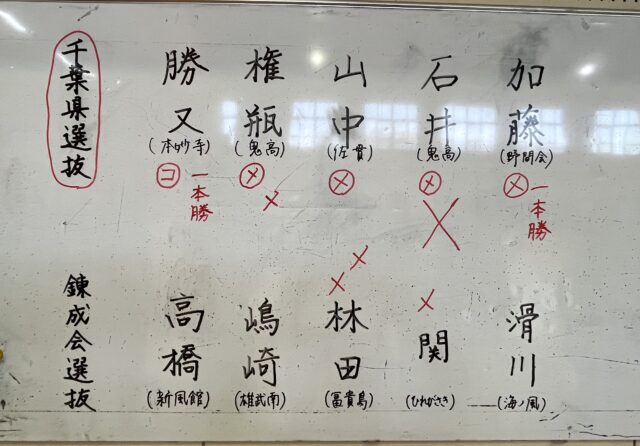 千葉県選抜
加藤
(野間会)
メ
一本勝
石井
(鬼高)
メ
山中
(佐貫)
メ
権瓶
(鬼高)
メ
メ
勝又
(本妙寺)
コ
一本勝
錬成会選抜
滑川
(海ノ風)
関
(ひれがさき)
メ
林田
(冨貴島)
メ
メ
嶋崎
(雄武南)
高橋
(新風館)